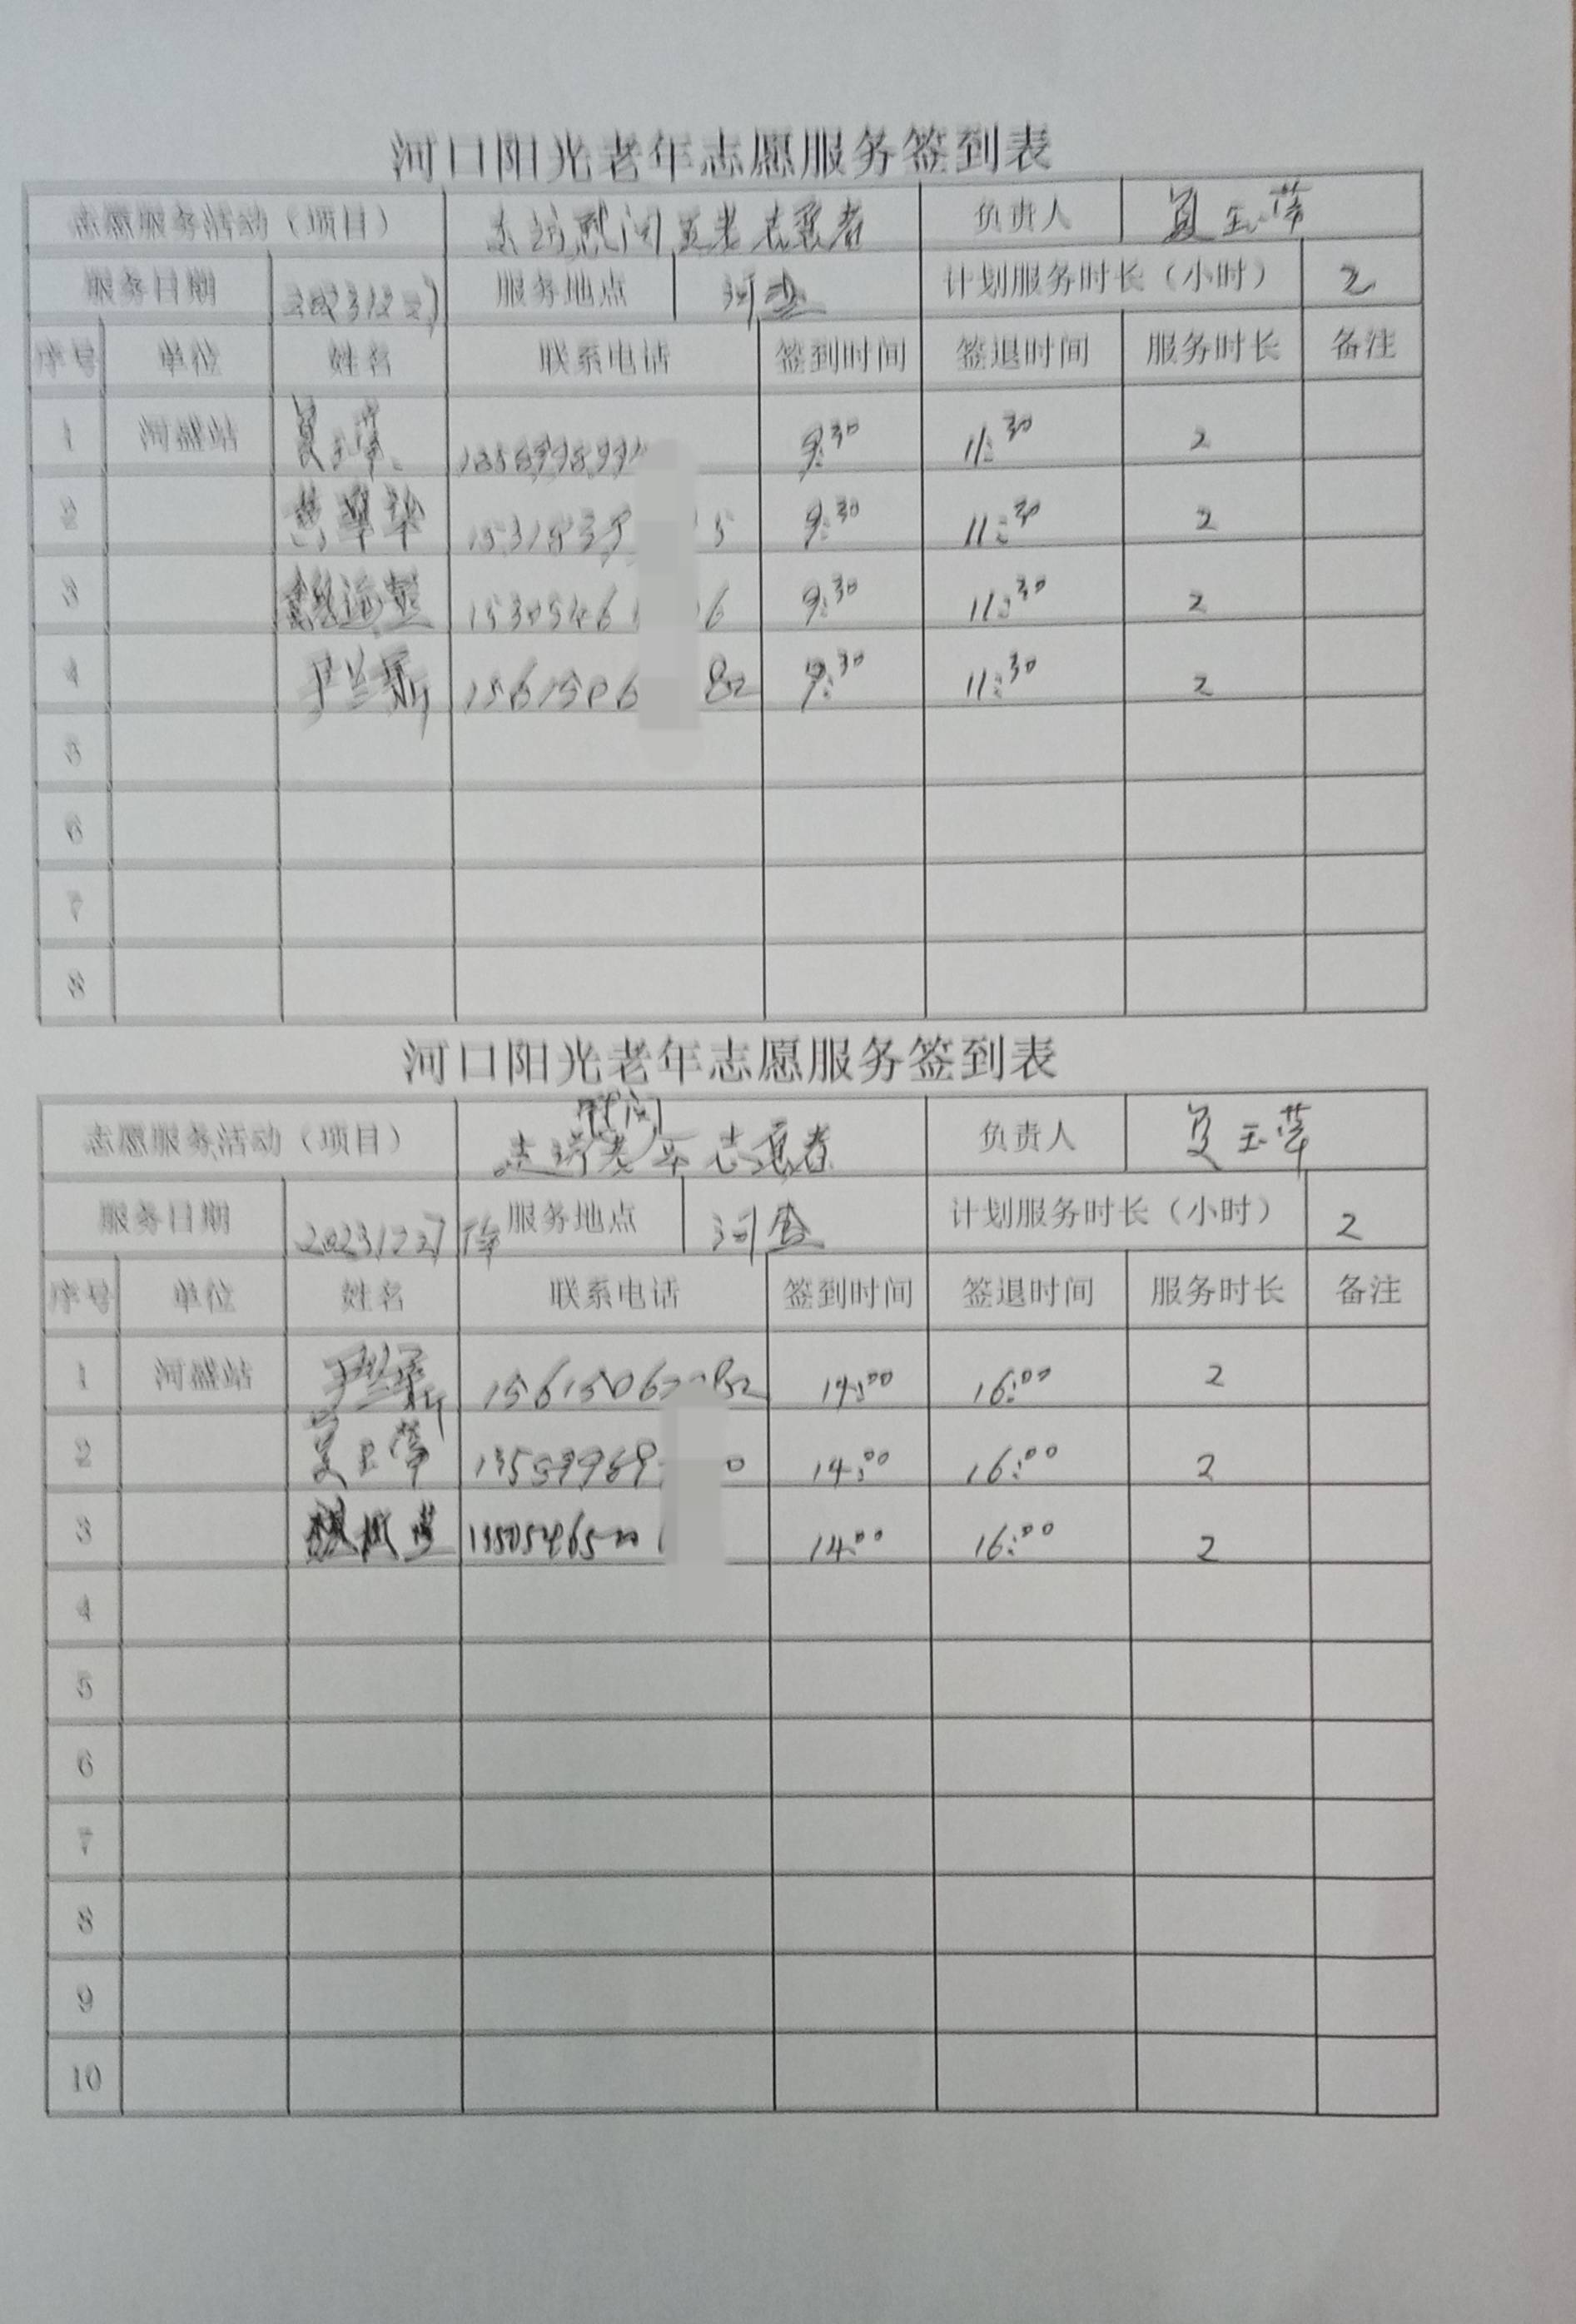 河口阳光老年志愿服务签到表
志愿服务活动（项目） 走访慰问五老志愿者 负责人 夏玉萍
服务日期 服务地点 河盛 计划服务时长（小时） 2
序号 单位 姓名 联系电话 签到时间 签退时间 服务时长 备注
1 河盛站 夏玉萍 9:30 11:30 2
2 1531839 5 9:30 11:30 2
3 1530546 6 9:30 11:30 2
4 1561506 82 9:30 11:30 2
5
6
7
8
河口阳光老年志愿服务签到表
慰问
志愿服务活动（项目） 走访老年志愿者 负责人 夏玉萍
服务日期 服务地点 河盛 计划服务时长（小时） 2
序号 单位 姓名 联系电话 签到时间 签退时间 服务时长 备注
1 河盛站 14:00 16:00 2
2 夏玉萍 14:00 16:00 2
3 14:00 16:00 2
4
5
6
7
8
9
10